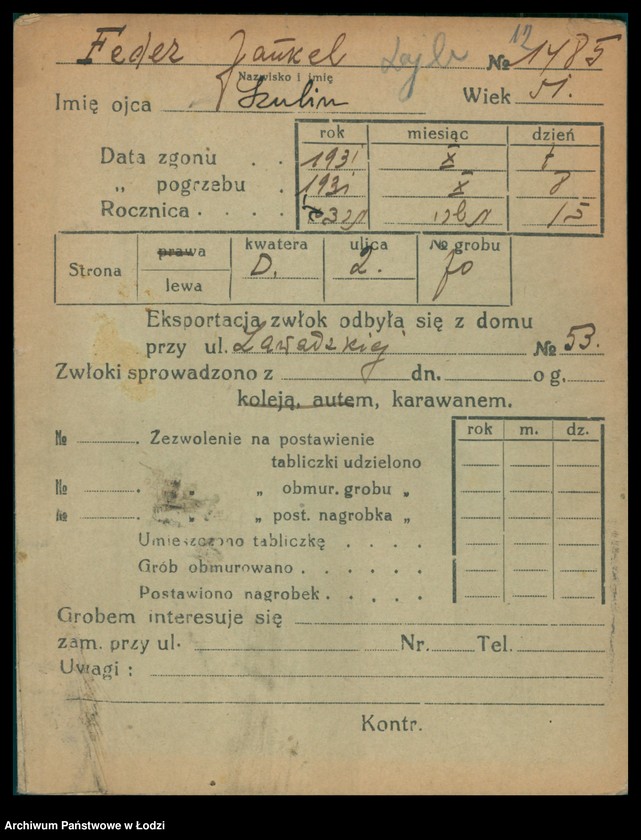 Feder Jankel Lajb № 12 1485
Nazwisko i imię
Imię ojca Szulim Wiek 51.
rok miesiąc dzień
Data zgonu . . 1931 X 7
„ pogrzebu . 1931 X 8
Rocznica . . . .
Strona prawa kwatera ulica № grobu
lewa D. 2. 70
Eksportacja zwłok odbyła się z domu
przy ul. Zawadzkiej № 53.
Zwłoki sprowadzono z dn. o g.
koleją, autem, karawanem.
rok m. dz.
№ . Zezwolenie na postawienie
tabliczki udzielono
№ . „ „ obmur. grobu „
№ . „ „ post. nagrobka „
Umieszczono tabliczkę . . . .
Grób obmurowano . . . . . .
Postawiono nagrobek . . . . .
Grobem interesuje się
zam. przy ul. Nr. Tel.
Uwagi :
Kontr.
Archiwum Państwowe w Łodzi